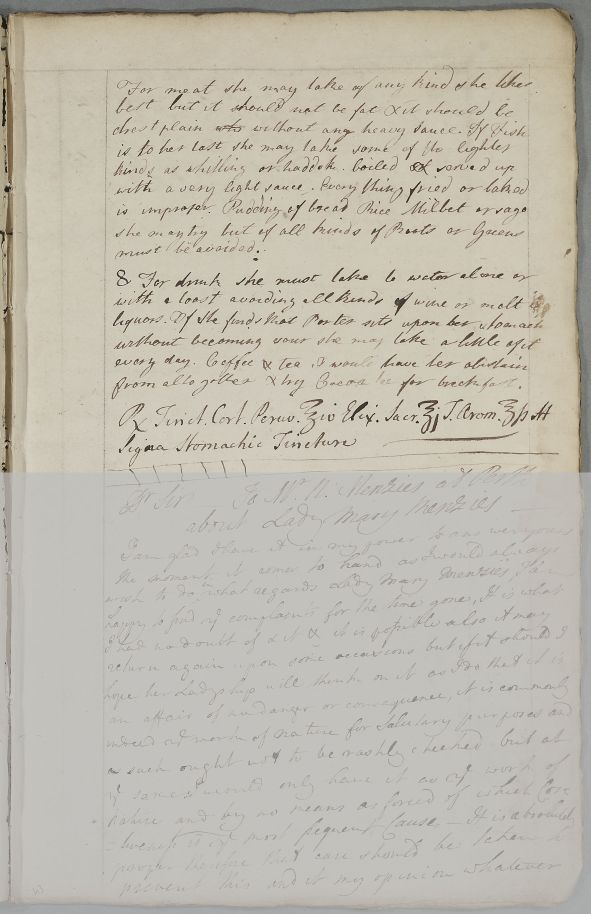 For meat she may take of any kind she likes
best but it should not be fat & it should be
drest plain without any heavy sauce. If Fish
is to her tast she may take some of the lighter
kinds as whitling or haddok. boiled & served up
with a very light sauce. Every thing fried or baked
is improper. Pudding of bread Rice Millet or sago
she may try but of all kinds of Roots or Greens
must be avoided.
8 For drink she must take to water alone or
with a toast avoiding all kinds of wine or malt
liquors. If she finds that Porter sits upon her stomach
without becoming sour she may take a little of it
every day. Coffee & tea, I would have her abstain
from altogether & try Cocoa for breakfast.
Rx Tinct. Cort. Peruv. ʒiv Elix. Sacr. ʒj T. Arom. ʒſs M
Signa Stomachic Tincture
Dr Sir To Mr. N. Menzies at Perth
about Lady Mary Menzies
I am glad I have it in my power to answer yours
the moment it comes to hand as I would always
wish to do in what regards Lady Mary Menzies, I am
happy to find yt complaint for the time gone, It is what
I had no doubt of & it is possible also it may
return again upon some occasions but if it should I
hope her Ladyship will think on it as I do that it is
an affair of no danger or consequence, it is commonly
indeed ye work of nature for salutary purposes and
as such ought not to be rashly checked. but at
ye same I would only have it as ye work of
nature and by no means as forced of which Cos-
tiveness is ye most frequent Cause – It is absolutely
proper therefore that care should be taken to
prevent this and it my opinion whatever